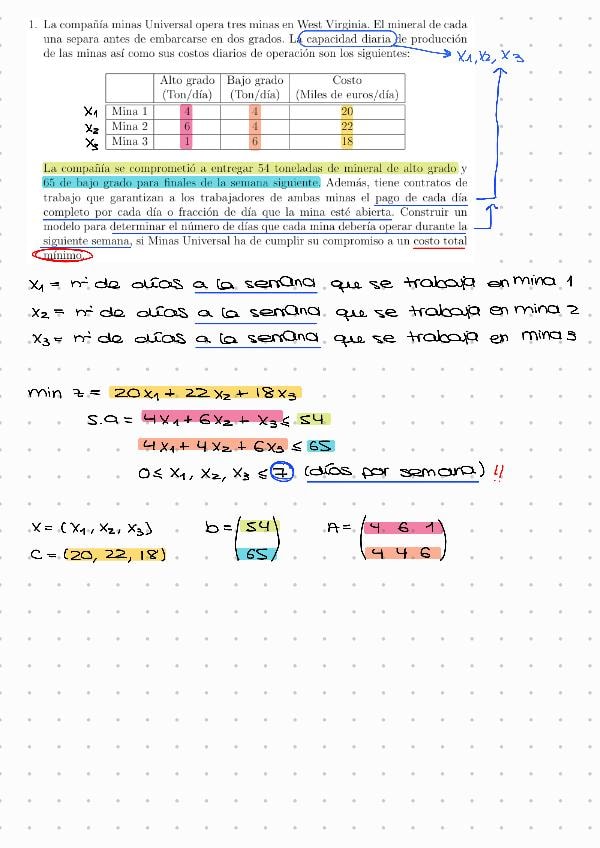 1. La compañía minas Universal opera tres minas en West Virginia. El mineral de cada
una separa antes de embarcarse en dos grados. La capacidad diaria de producción
de las minas así como sus costos diarios de operación son los siguientes:
x1, x2, x3
Alto grado Bajo grado Costo
(Ton/día) (Ton/día) (Miles de euros/día)
x1 Mina 1 4 4 20
x2 Mina 2 6 4 22
x3 Mina 3 1 6 18
La compañía se comprometió a entregar 54 toneladas de mineral de alto grado y
65 de bajo grado para finales de la semana siguiente. Además, tiene contratos de
trabajo que garantizan a los trabajadores de ambas minas el pago de cada día
completo por cada día o fracción de día que la mina esté abierta. Construir un
modelo para determinar el número de días que cada mina debería operar durante la
siguiente semana, si Minas Universal ha de cumplir su compromiso a un costo total
mínimo.
x1 = nº de días a la semana que se trabaja en mina 1
x2 = nº de días a la semana que se trabaja en mina 2
x3 = nº de días a la semana que se trabaja en mina 3
min z = 20x1 + 22x2 + 18x3
s.a = 4x1 + 6x2 + x3 ≤ 54
4x1 + 4x2 + 6x3 ≤ 65
0 ≤ x1, x2, x3 ≤ 7 (días por semana) !!
x = (x1, x2, x3) b = (54 A = (4 6 1
c = (20, 22, 18) 65) 4 4 6)